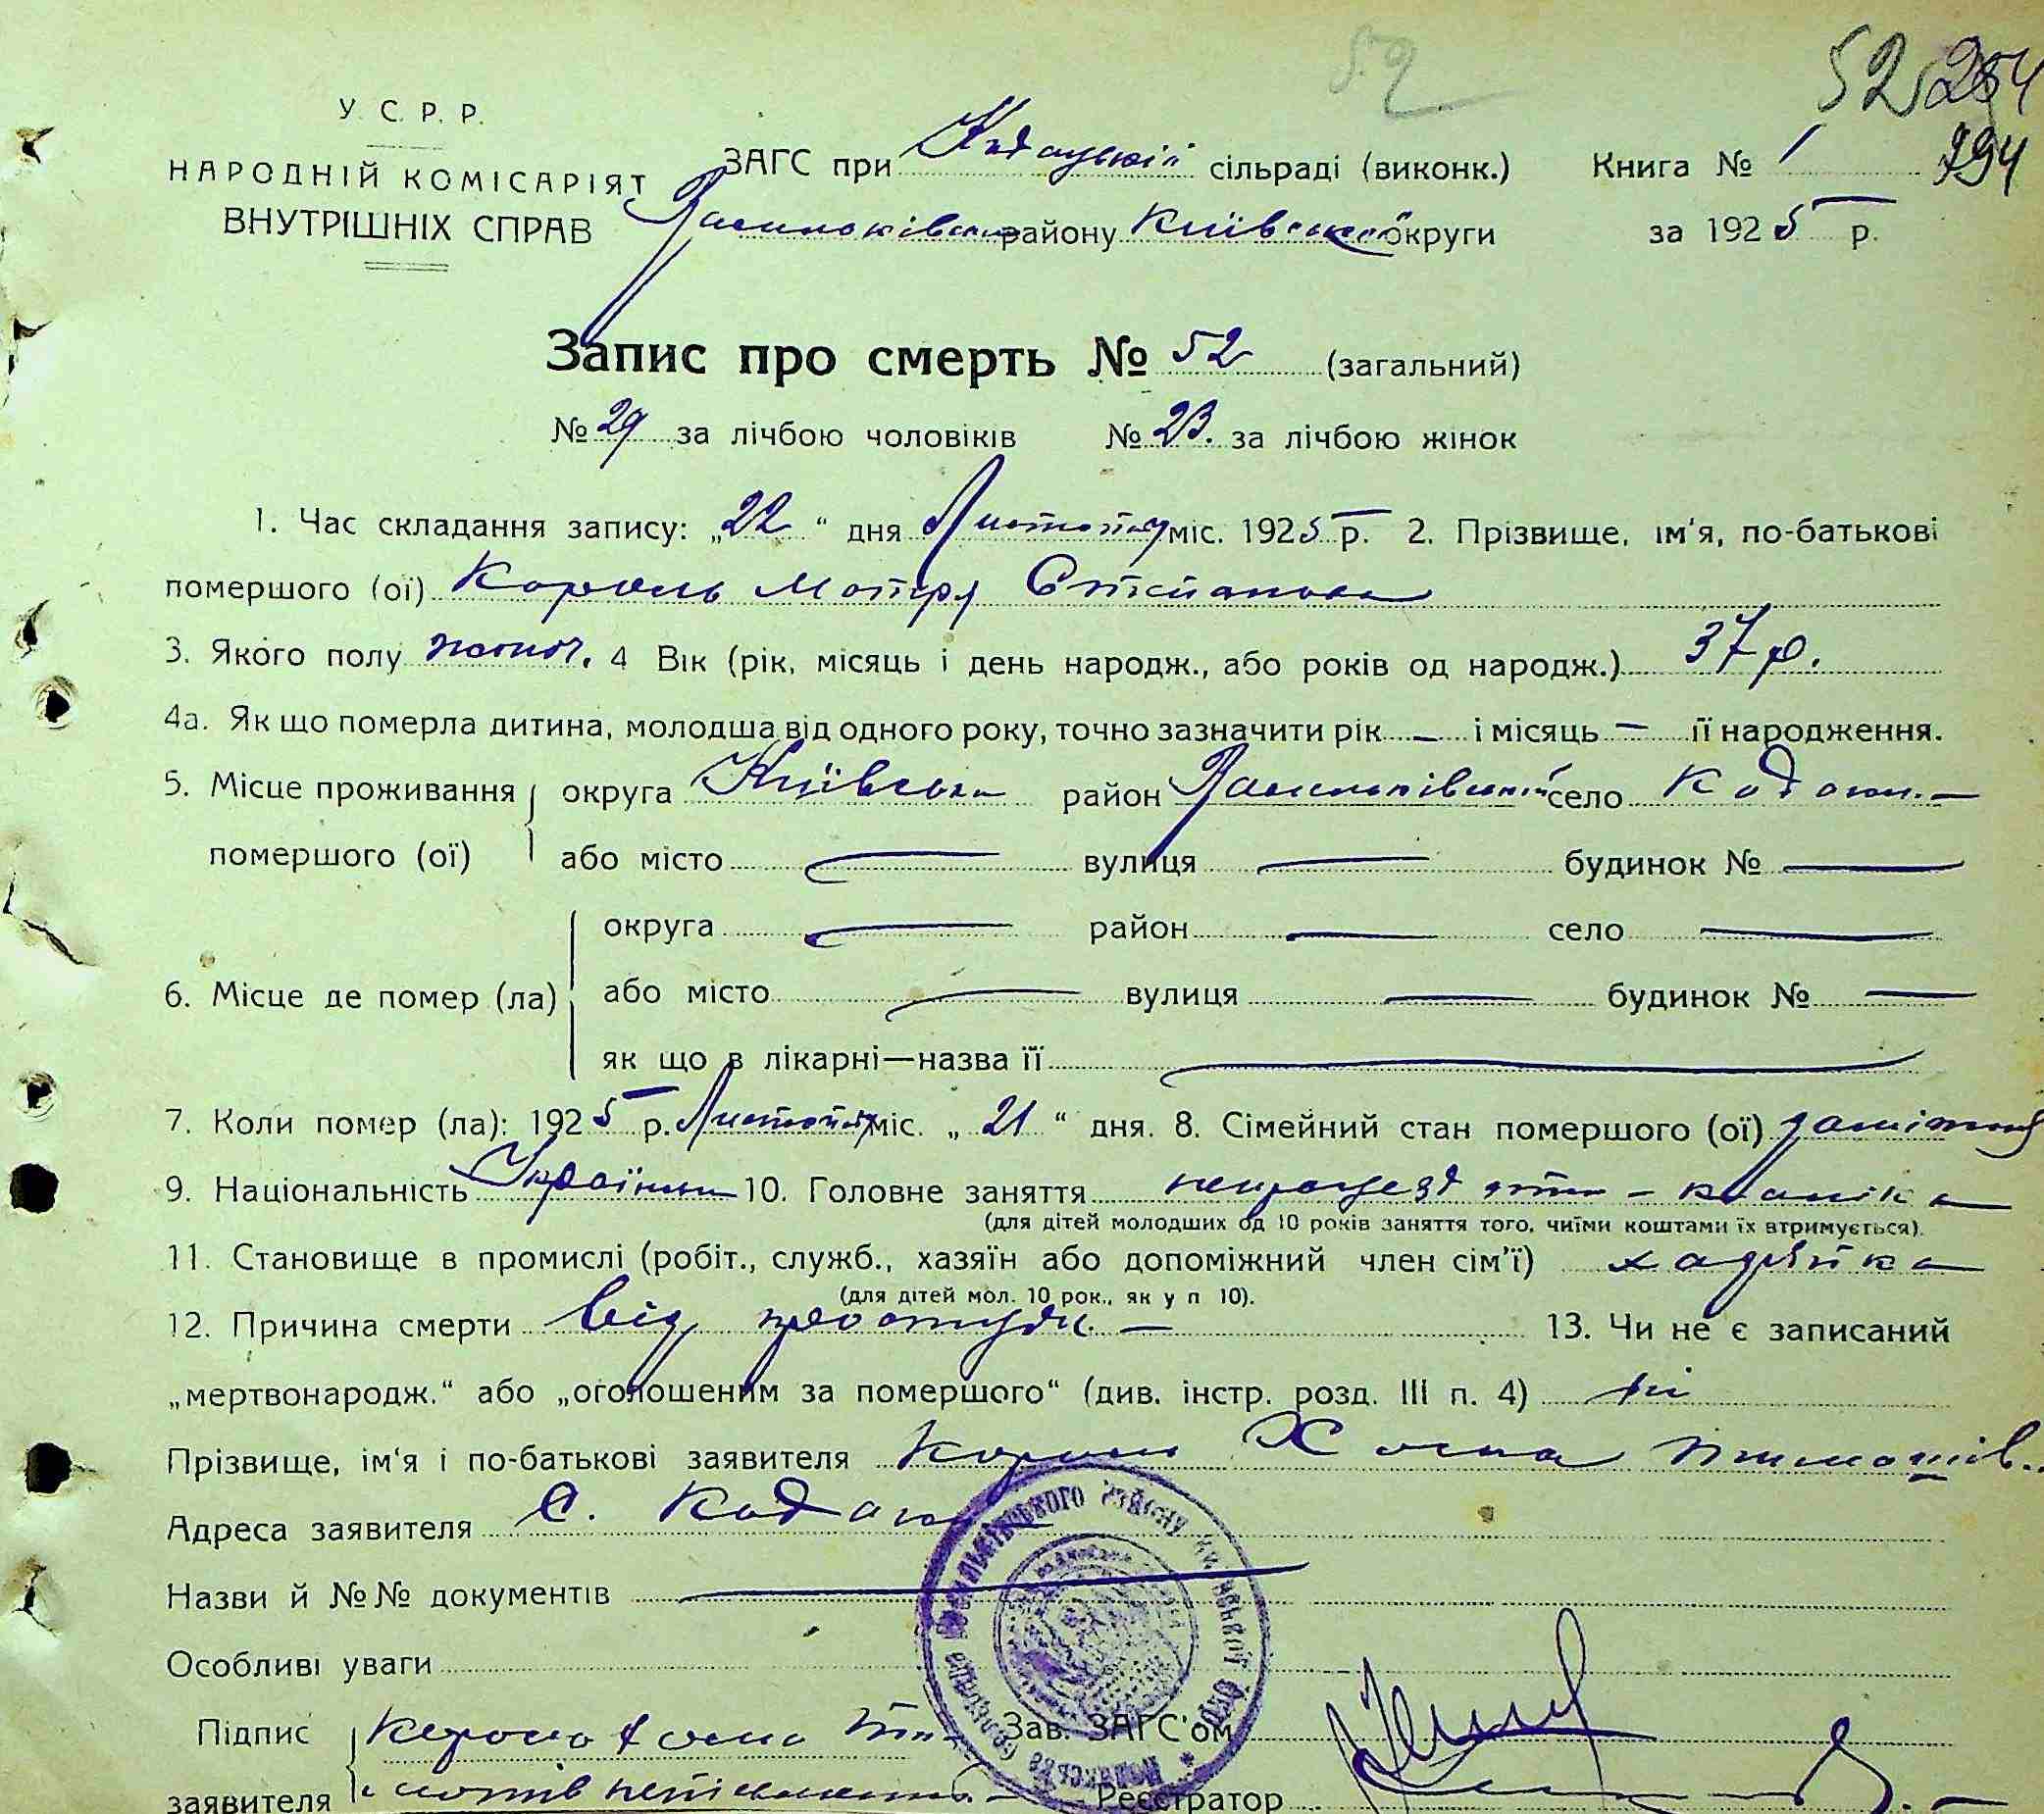 52
52 254
У. С. Р. Р.
794
НАРОДНІЙ КОМІСАРІЯТ
ВНУТРІШНІХ СПРАВ
ЗАГС при Кодацькій сільраді (виконк.) Книга № 1
Васильківського району Київської округи за 1925 р.
Запис про смерть № 52 (загальний)
№ 29 за лічбою чоловіків № 23. за лічбою жінок
1. Час складання запису: „22“ дня Листопад міс. 1925 р. 2. Прізвище, ім'я, по-батькові
помершого (ої) Король Мотря Степанова
3. Якого полу жіноч. 4 Вік (рік, місяць і день народж., або років од народж.) 37 р.
4а. Як що померла дитина, молодша від одного року, точно зазначити рік — і місяць — її народження.
5. Місце проживання округа Київська район Васильківський село Кодаки —
помершого (ої) або місто — вулиця — будинок № —
округа — район — село —
6. Місце де помер (ла) або місто — вулиця — будинок № —
як що в лікарні—назва її —
7. Коли помер (ла): 1925 р. Листопад міс. „21“ дня. 8. Сімейний стан помершого (ої) заміжня
9. Національність Українка 10. Головне заняття
(для дітей молодших од 10 років заняття того, чиїми коштами їх втримується).
11. Становище в промислі (робіт., служб., хазяїн або допоміжний член сім'ї) хазяйка
(для дітей мол. 10 рок., як у п 10).
12. Причина смерти від простуди — 13. Чи не є записаний
„мертвонародж.“ або „оголошеним за помершого“ (див. інстр. розд. III п. 4) ні
Прізвище, ім'я і по-батькові заявителя Король Хома Тимошів.
Адреса заявителя С. Кодаки
Назви й №№ документів —
Особливі уваги
Підпис Король Хома Зав. ЗАГС'ом
заявителя Реєстратор